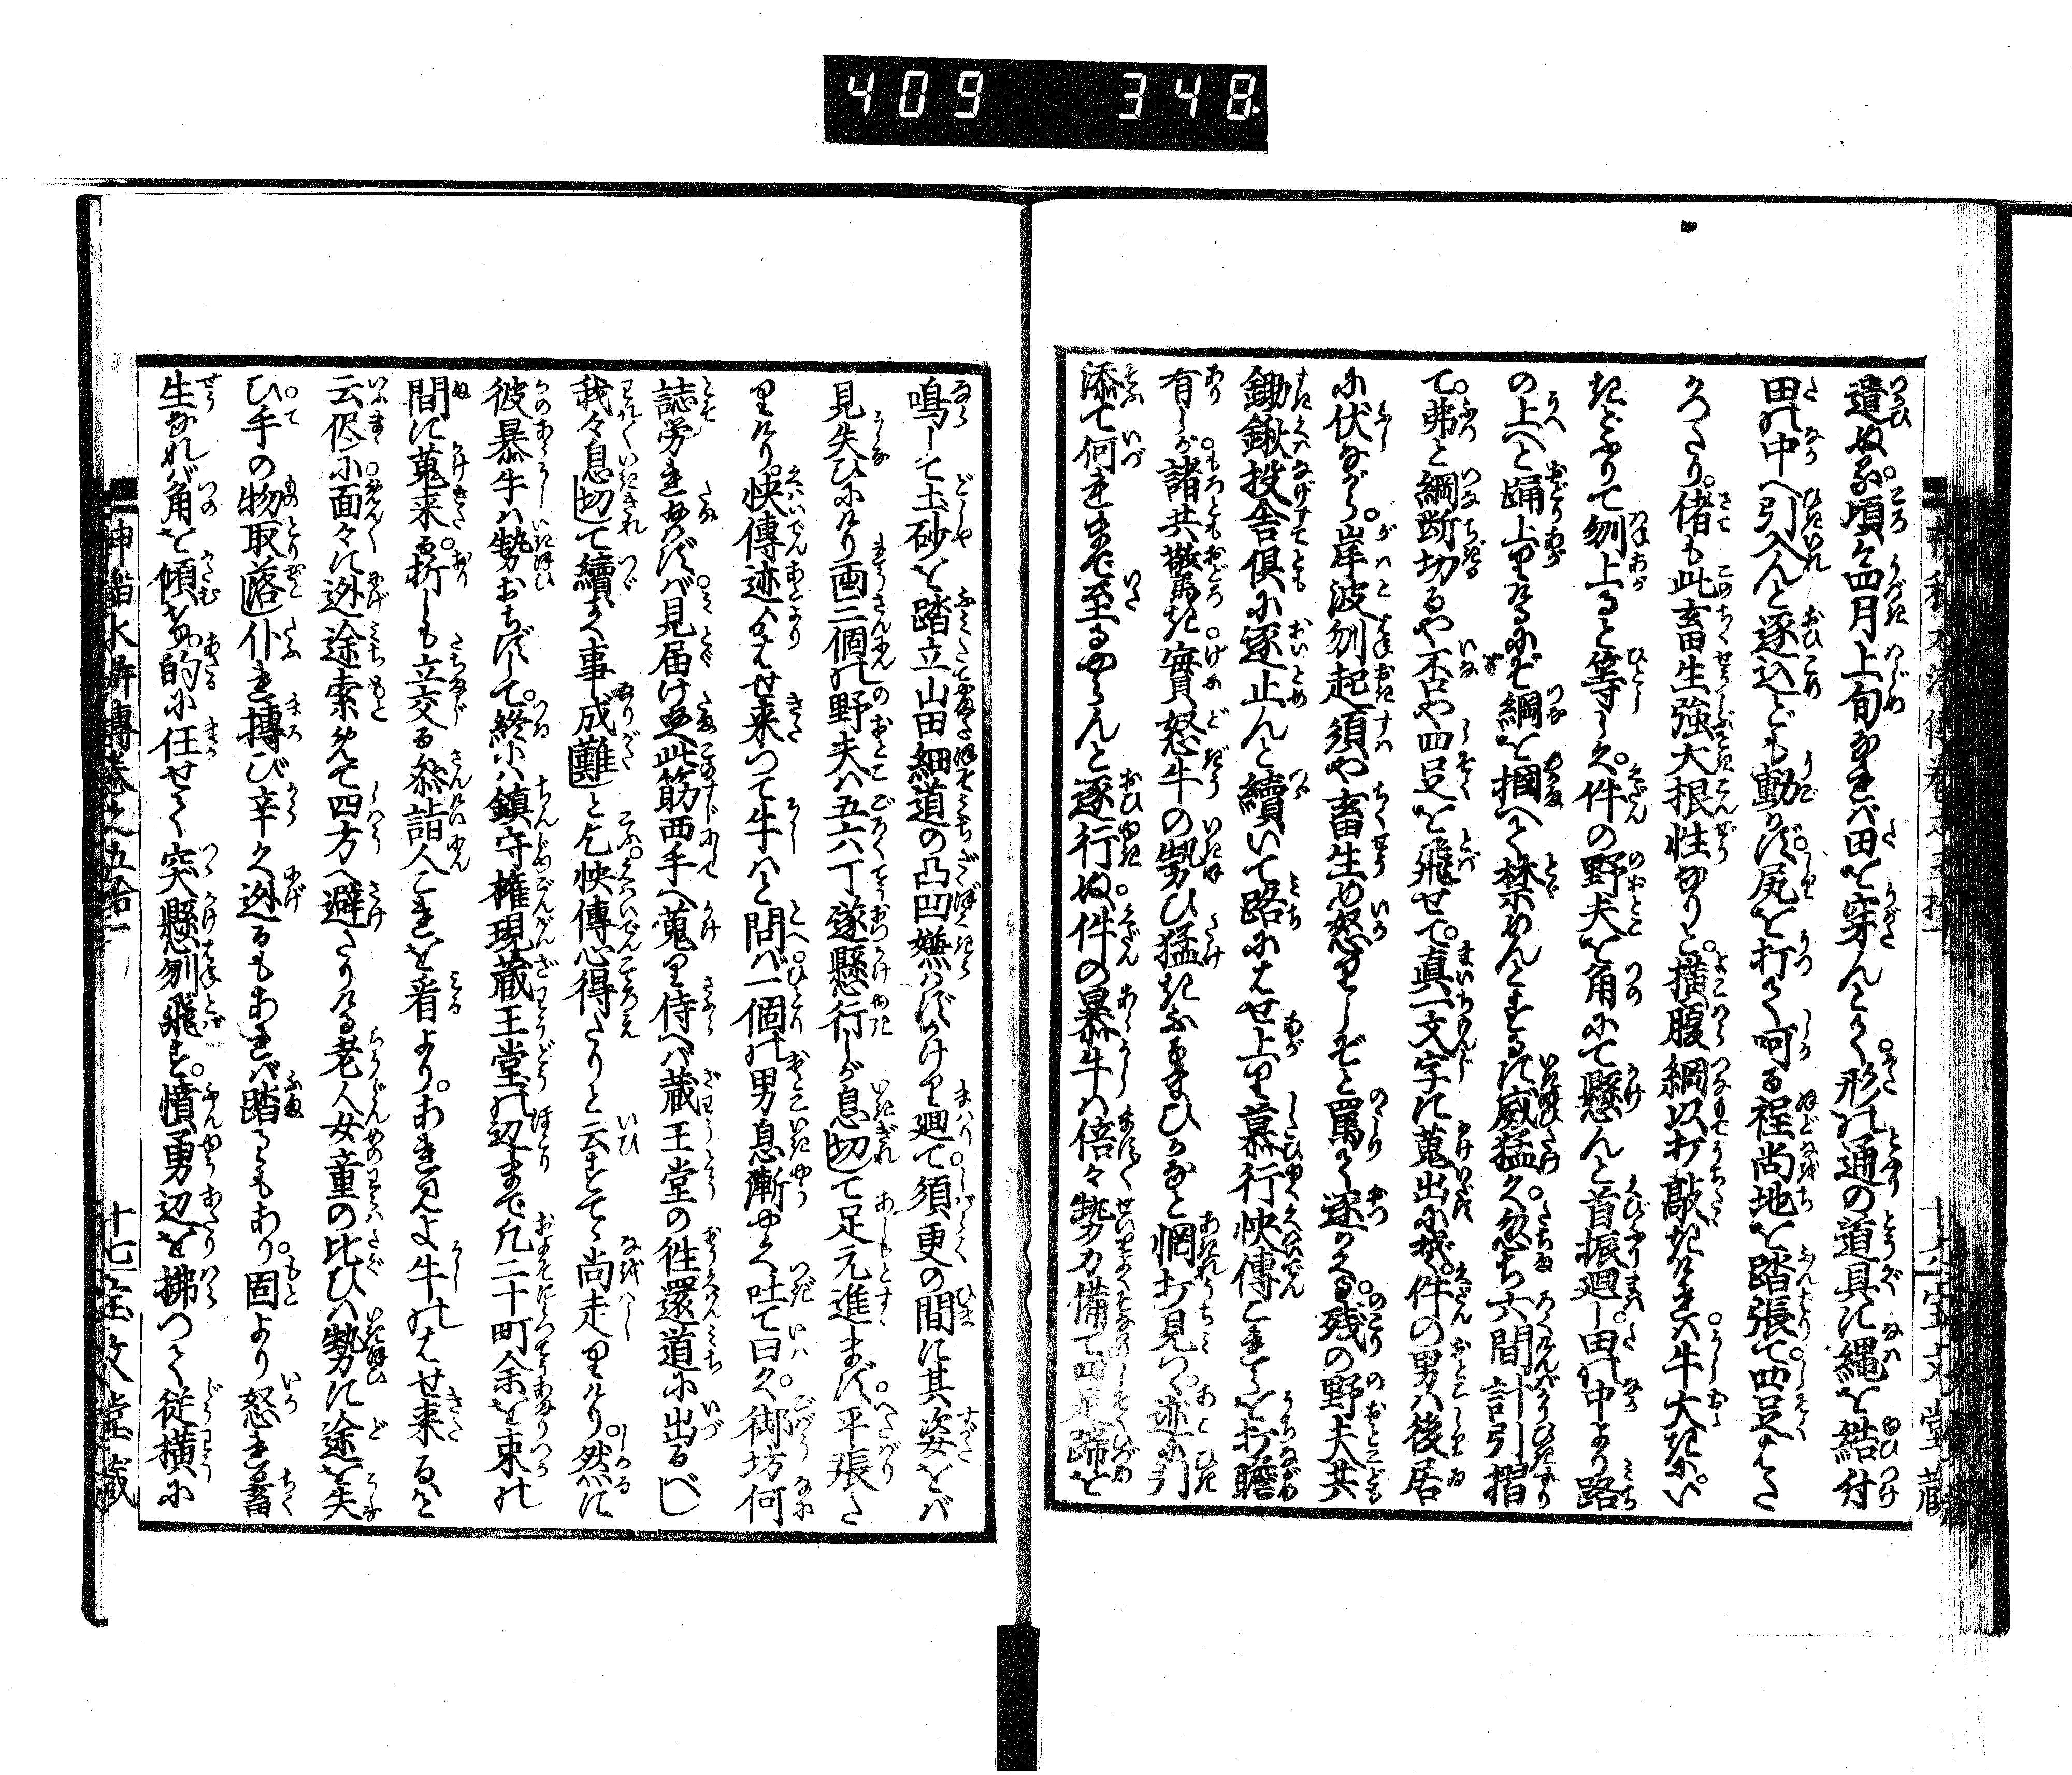 409 348
遣ぬる。頃く四月上旬なれば田を穿んとて。形の通の道具に縄を結付
田の中へ引入んと逐込ども動かず。尻を打て呵る程尚地を踏張て四足はた
らかさず。偖も此畜生強大根性なりと。横腹綱以打敲きければ。牛大きに
きどふりて刎上ると等しく。件の野夫を角にて懸んと首振廻し。田の中より路
の上へと踊上りけるにぞ綱を掴へて禁めんとするに威猛く。忽ち六間計引摺
て。弗と綱断切るや否や四足を飛せて。真一文字に蒐出にぞ。件の男は後居
に伏ながら。岸波刎起須や畜生め怒りしぞと罵て逐かくる。残の野夫共
鋤鍬投舎倶に逐止んと續いて路にはせ上り慕行快傳これを打瞻
有しが。諸共驚き。實怒牛の勢ひ猛きふるまひかなと惘打見つ。迹に引
添て何れまで至るやらんと逐行ぬ。件の暴牛は倍々勢力備て四足蹄を
鳴して土砂を踏立山田細道の凸凹嫌はずかけり廻て。須更の間に其姿をば
見失ひにけり両三個の野夫は五六丁遂懸行しが息切て足元進まず。平張た
りけり。快傳迹よりはせ来つて牛はと問ば。一個の男息漸やく吐て曰く。御坊何
誌労れ給はずば。見届け給へ此筋西手へ蒐り侍へば蔵王堂の徃還道に出るべし
我々息切て續く事成難しと乞。快傳心得たりと云すてゝ尚走りけり。然に
彼暴牛は勢おちずして。終には鎮守権現蔵王堂の辺まで凡二十町余を束の
間に蒐来る。折しも立交る參詣人これを看より。あれ見よ牛のはせ来るはと
云侭に。面々に迯途索めて四方へ避たりける老人女童の比ひは勢に途を失
ひ。手の物取落し仆れ摶び辛く迯るもあれば踏るゝもあり。固より怒れる畜
生なれば角を傾け的に任せて突懸刎飛す。憤勇辺を拂つて従横に
神稲水滸傳巻之五拾一
十七 宝文堂蔵